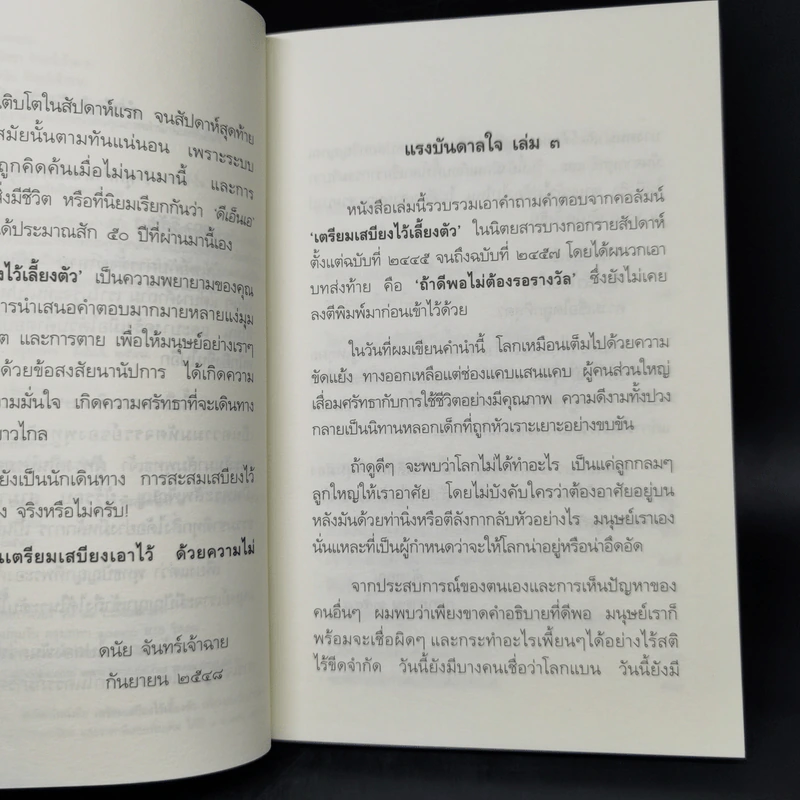 เติบโตในสัปดาห์แรก จนสัปดาห์สุดท้าย
สมัยนั้นตามทันแน่นอน เพราะระบบ
ถูกคิดค้นเมื่อไม่นานมานี้ และการ
สิ่งมีชีวิต หรือที่นิยมเรียกกันว่า 'ดีเอ็นเอ'
ได้ประมาณสัก ๕๐ ปีที่ผ่านมานี้เอง
ไว้เลี้ยงตัว' เป็นความพยายามของคุณ
การนำเสนอคำตอบมากมายหลายแง่มุม
และการตาย เพื่อให้มนุษย์อย่างเราๆ
ด้วยข้อสงสัยนานัปการ ได้เกิดความ
ามมั่นใจ เกิดความศรัทธาที่จะเดินทาง
าวไกล
ยังเป็นนักเดินทาง การสะสมเสบียงไว้
จริงหรือไม่ครับ!
เตรียมเสบียงเอาไว้ ด้วยความไม่
ดนัย จันทร์เจ้าฉาย
กันยายน ๒๕๔๘
แรงบันดาลใจ เล่ม ๓
หนังสือเล่มนี้รวบรวมเอาคำถามคำตอบจากคอลัมน์
'เตรียมเสบียงไว้เลี้ยงตัว' ในนิตยสารบางกอกรายสัปดาห์
ตั้งแต่ฉบับที่ ๒๔๔๕ จนถึงฉบับที่ ๒๔๕๗ โดยได้ผนวกเอา
บทส่งท้าย คือ 'ถ้าดีพอไม่ต้องรอรางวัล' ซึ่งยังไม่เคย
ลงตีพิมพ์มาก่อนเข้าไว้ด้วย
ในวันที่ผมเขียนคำนำนี้ โลกเหมือนเต็มไปด้วยความ
ขัดแย้ง ทางออกเหลือแต่ช่องแคบแสนแคบ ผู้คนส่วนใหญ่
เสื่อมศรัทธากับการใช้ชีวิตอย่างมีคุณภาพ ความดีงามทั้งปวง
กลายเป็นนิทานหลอกเด็กที่ถูกหัวเราะเยาะอย่างขบขัน
ถ้าดูดีๆ จะพบว่าโลกไม่ได้ทำอะไร เป็นแค่ลูกกลมๆ
ลูกใหญ่ให้เราอาศัย โดยไม่บังคับใครว่าต้องอาศัยอยู่บน
หลังมันด้วยท่านิ่งหรือตีลังกากลับหัวอย่างไร มนุษย์เราเอง
นั่นแหละที่เป็นผู้กำหนดว่าจะให้โลกน่าอยู่หรือน่าอึดอัด
จากประสบการณ์ของตนเองและการเห็นปัญหาของ
คนอื่นๆ ผมพบว่าเพียงขาดคำอธิบายที่ดีพอ มนุษย์เราก็
พร้อมจะเชื่อผิดๆ และกระทำอะไรเพี้ยนๆได้อย่างไร้สติ
ไร้ขีดจำกัด วันนี้ยังมีบางคนเชื่อว่าโลกแบน วันนี้ยังมี